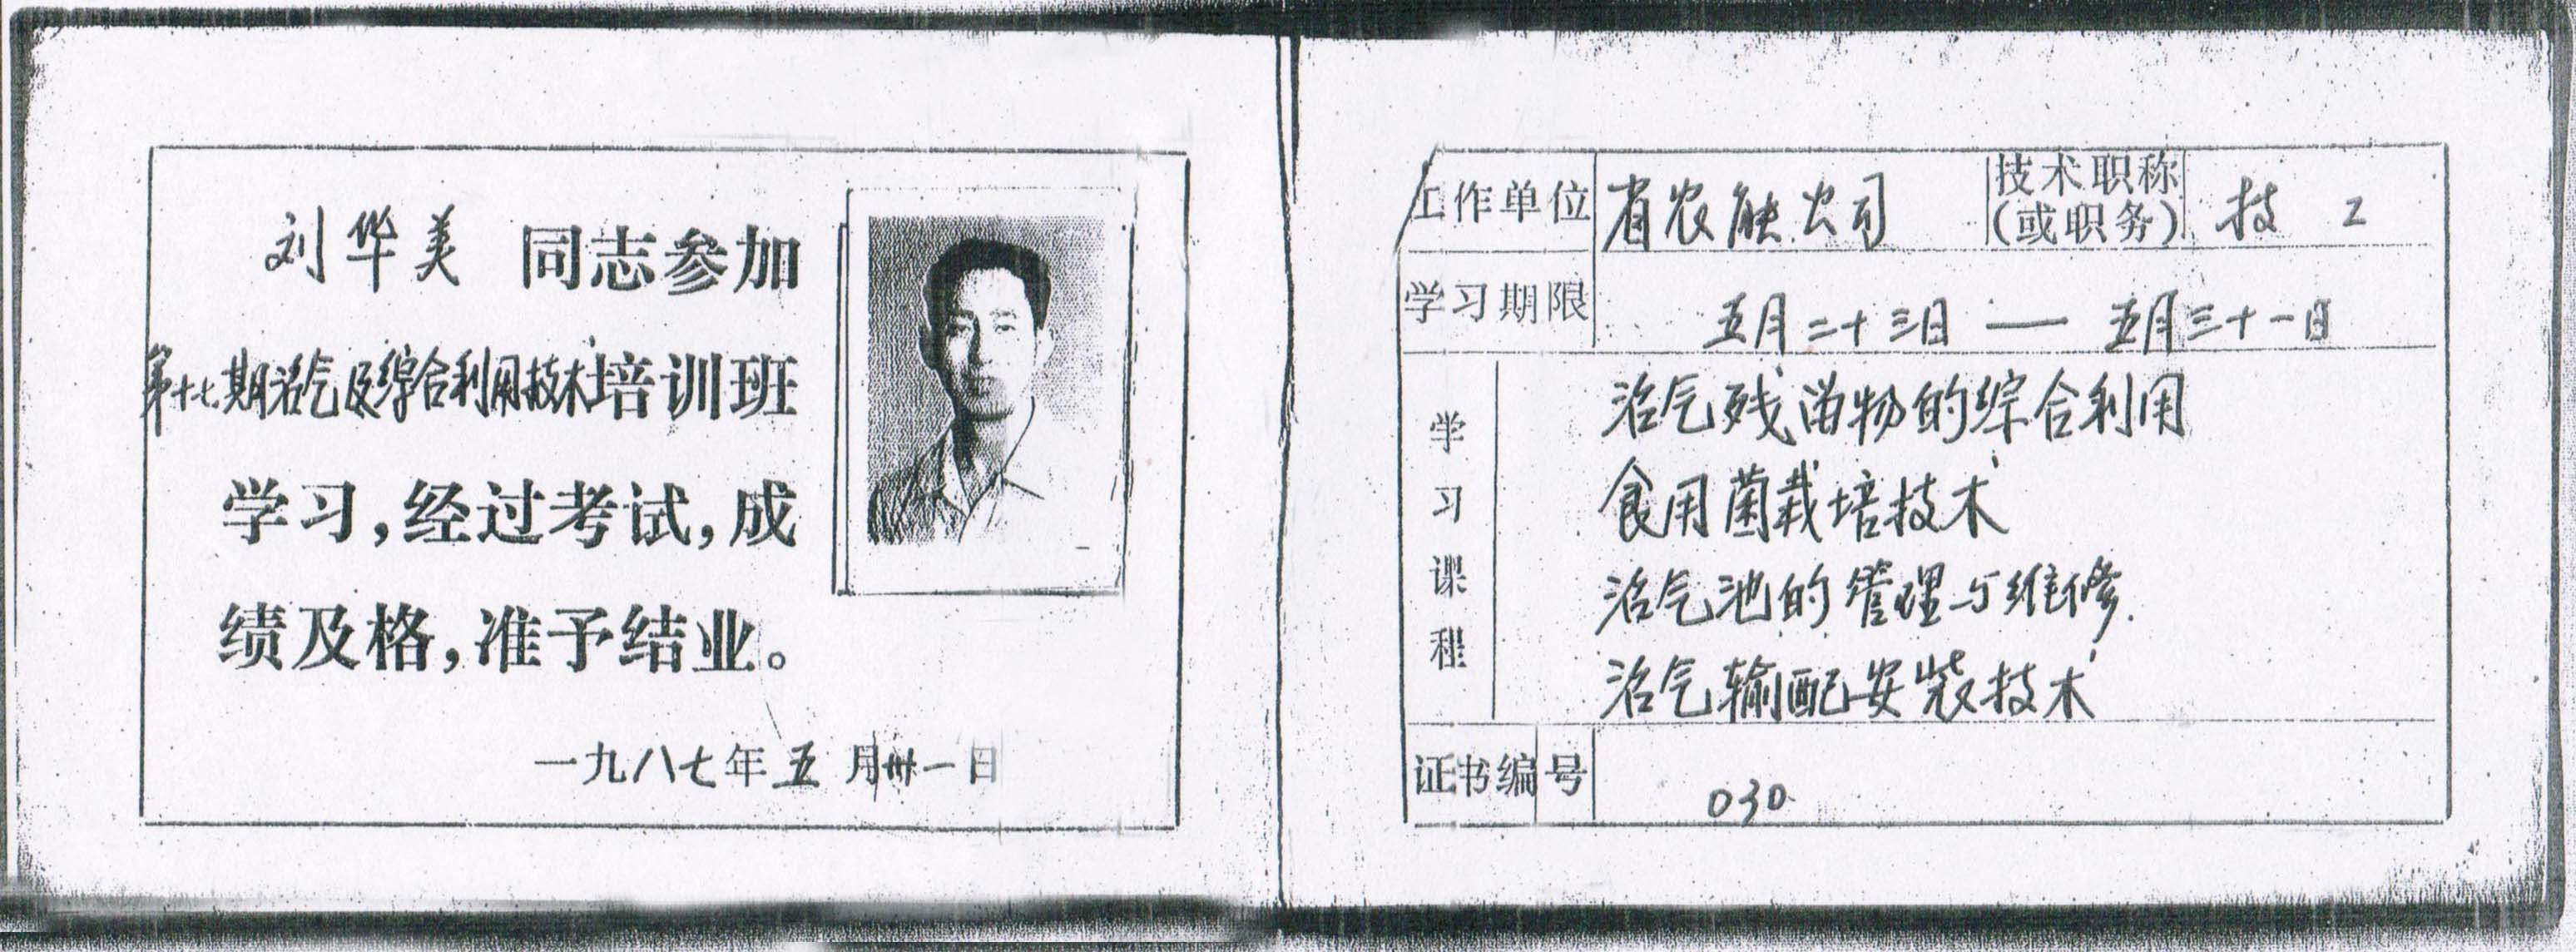 刘华美 同志参加
第十七期沼气及综合利用技术培训班
学习，经过考试，成
绩及格，准予结业。
一九八七年五月卅一日
工作单位 省农能公司 技术职称（或职务） 技工
学习期限 五月二十三日——五月三十一日
学习课程
沼气残留物的综合利用
食用菌栽培技术
沼气池的管理与维修.
沼气输配安装技术
证书编号 030